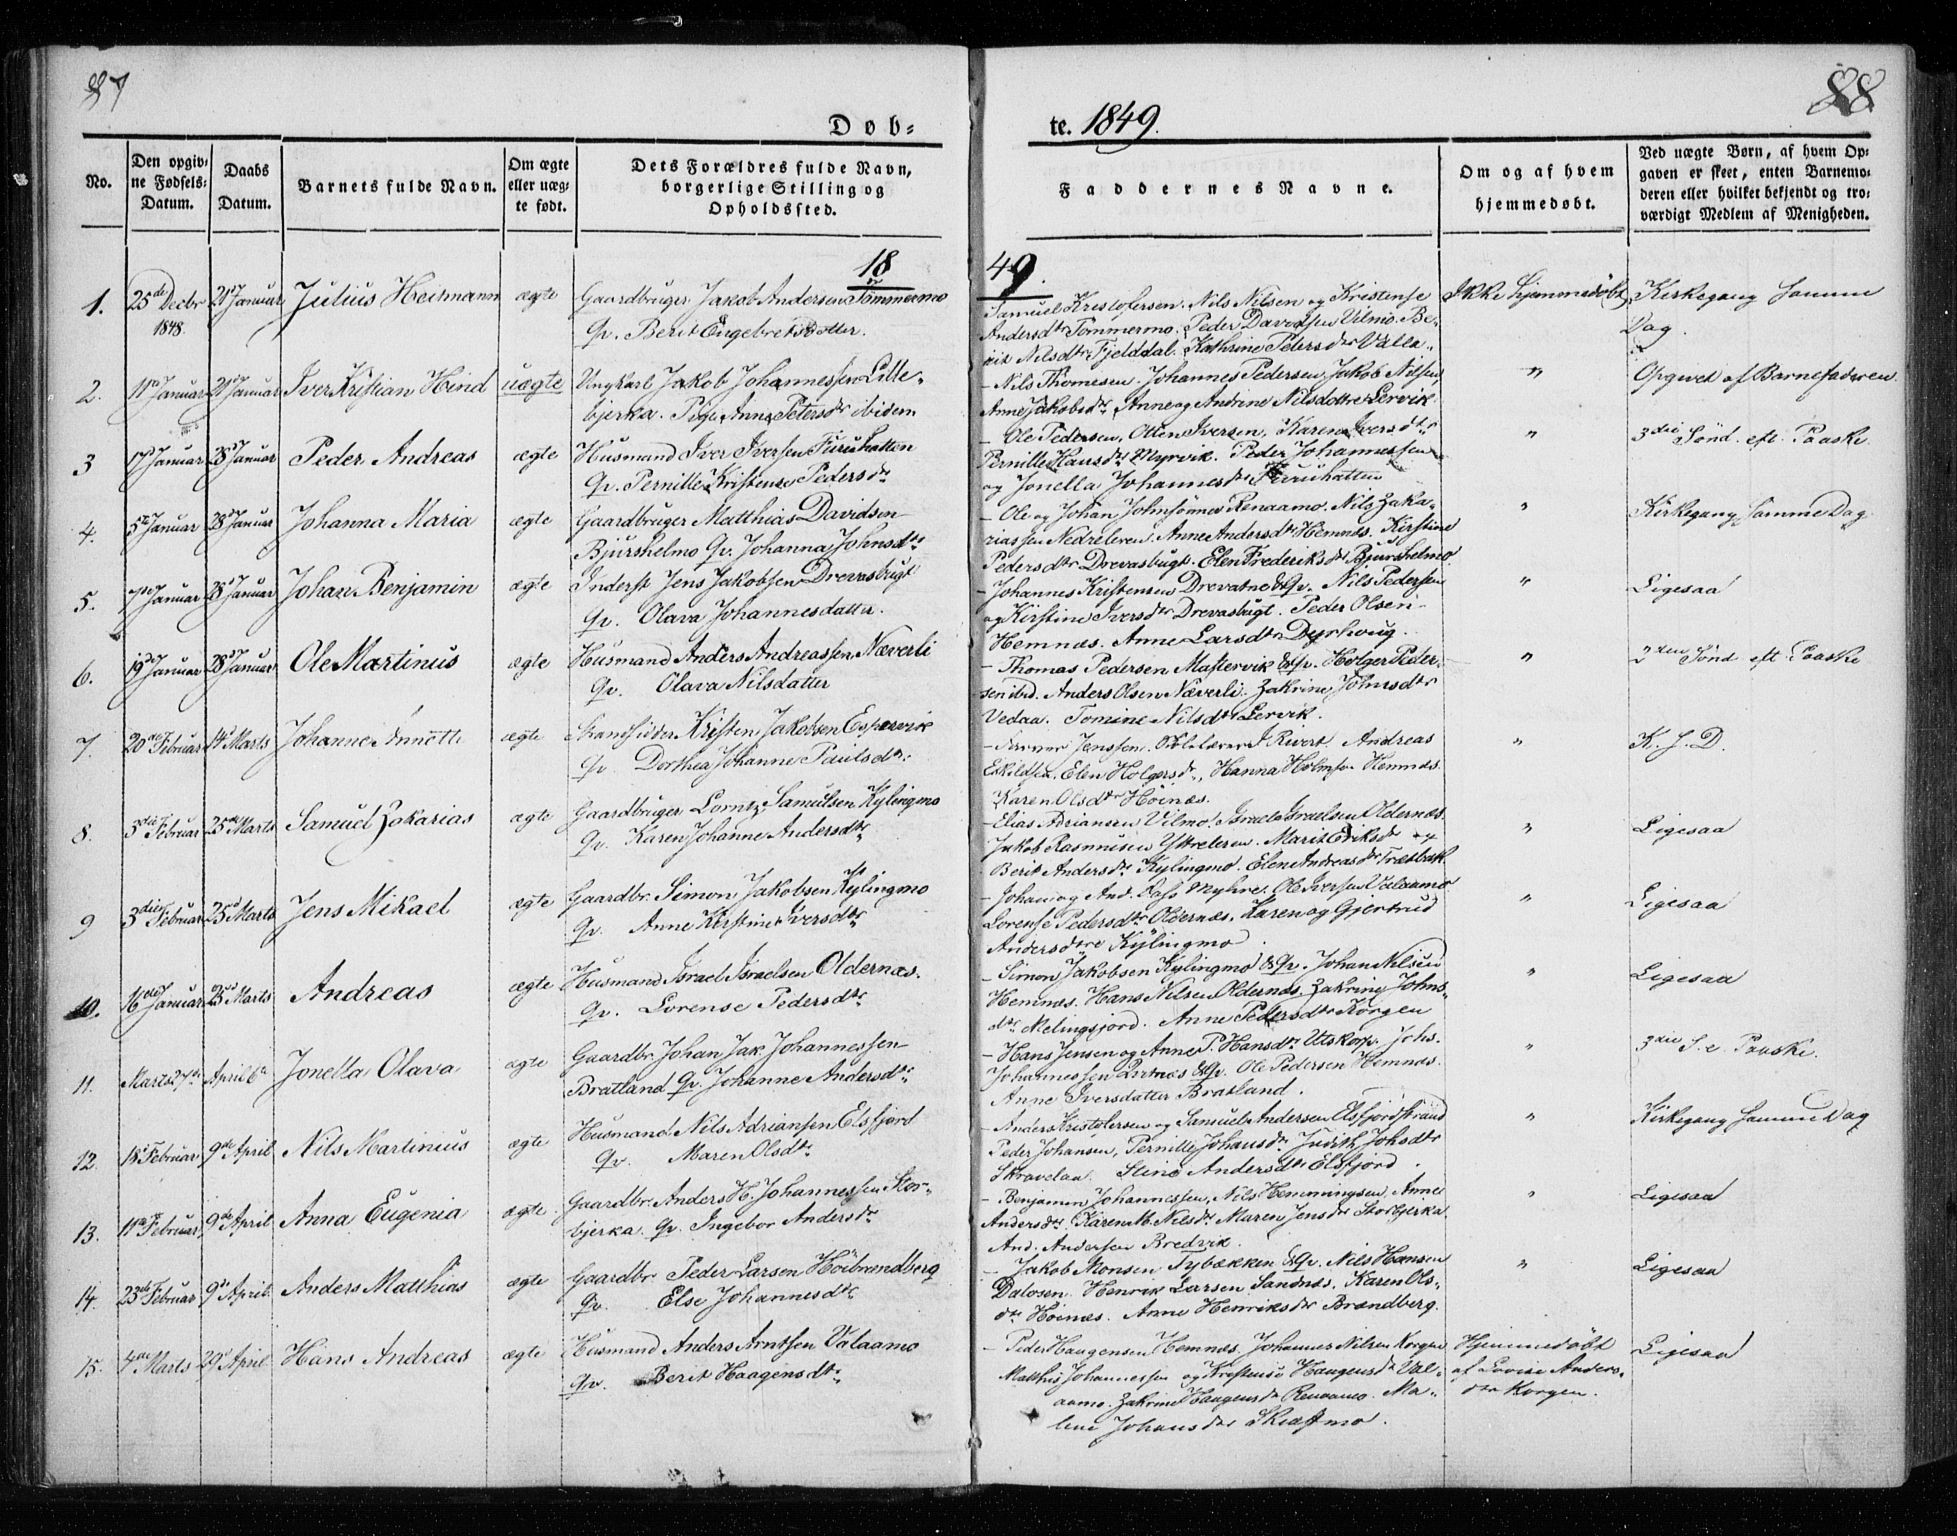 87
88
Døb=
te. 1849.
No.
Den opgiv=
ne Fødsels=
Datum.
Daabs
Datum.
Barnets fulde Navn.
Om ægte
eller uæg=
te født.
Dets Forældres fulde Navn,
borgerlige Stilling og
Opholdssted.
Faddernes Navne.
Om og af hvem
hjemmedøbt.
Ved uægte Børn, af hvem Op=
gaven er skeet, enten Barnemo=
deren eller hvilket bekjendt og tro=
værdigt Medlem af Menigheden.
18
49.
1. 25de Decbr 1848. 21 Januar Julius Heitmann ægte
Gaardbruger Jakob Andersen Tömmermo
Qv. Berit Engebretsdatter.
Samuel Kristofersen. Nils Nilsen og Kristense
Andersdtr Tömmermo. Peder Davidsen Vilmo. Be-
rit Nilsdtr Fjelddal. Kathrine Petersdtr Valla.
Ikke hjemmedöbt
Kirkegang Samme
Dag.
2. 11 Januar 21 Januar Iver Kristian Hind uægte
Ungkarl Jakob Johannessen Lille-
bjerka. Pige Anne Petersdr ibidem
- Nils Thomesen. Johannes Pedersen Jakob Nilsen,
Anne Jakobsdtr, Anne og Andrine Nilsdottre Lervik
"
Opgivet af Barnefaderen.
3 17 Januar 28 Januar Peder Andreas ægte
Husmand Iver Iversen Furuhatten
Qv. Pernille Kristense Pedersdr
- Ole Pedersen, Otten Iversen, Karen Iversdtr
Pernille Hansdtr Myrvik. Peder Johannessen
og Jonella Johannesdtr Furuhatten
"
3die Sönd. eft. Paaske
4. 5te Januar 28 Januar Johanna Maria ægte
Gaardbruger Matthias Davidsen
Bjurshelmo Qv. Johanna Johnsdtr
- Ole og Johan Johnsönner Renaamo. Nils Zaka-
riassen Nedreleren. Anne Andersdtr Hemnes. Kirstine
Pedersdtr Drevasbugt. Elen Frederiksdtr Bjurshelmo
"
Kirkegang Samme Dag.
5. 7de Januar 28 Januar Johan Benjamin ægte
Inderst Jens Jakobsen Drevasbugt
Qv. Olava Johannesdatter.
- Johannes Kristensen Drevatne & Qv. Nils Pedersen
og Kirstine Iversdtr Drevasbugt. Peder Olsen
Hemnæs. Anne Larsdtr Dyrhoug.
"
Ligesaa
6. 19de Januar 28 Januar Ole Martinus ægte
Husmand Anders Andreassen Næverli
Qv. Olava Nilsdatter
- Thomas Pedersen Mastervik & Qv. Holger Peder-
sen ibid. Anders Olsen Næverli. Zakrine Johnsdtr
Vedaa. Tomine Nilsdtr Lervik.
"
2den Sönd. eft Paaske
7. 20de Februar 14 Marts Johanne Annette ægte
Strandsidder Kristen Jakobsen Espesvik
Qv Dorthea Johanne Paulsdtr.
Jenssen. Skolelærer Andreas
Eskildsen. Elen Holgersdr, Hanna Holm Hemnæs.
Karen Olsdtr Höinæs.
"
K. S. D.
8. 3die Februar 25 Marts Samuel Zakarias ægte
Gaardbruger Lorntz Samuelsen Kylingmo
Qv. Karen Johanne Andersdtr
- Elias Adriansen Vilmo. Israel Israelsen Oldernæs.
Jakob Rasmusen Ytreleren. Marit Eriksdr
Berit Andersdr Kylingmo. Elen Andreasdtr Træbak.
"
Ligesaa
9 3die Februar 25 Marts Jens Mikael ægte
Gaardbr. Simon Jakobsen Kylingmo
Qv. Anne Kirstine Iversdtr
- Johan og And. Myhre. Ole Iversen Valaamo
Lorense Pedersdtr Oldernæs. Karen og Gjertrud
Andersdtre Kylingmo.
"
Ligesaa
10. 16de Januar 25 Marts Andreas ægte
Husmand Israel Israelsen Oldernæs.
Qv. Lorense Pedersdtr
- Simon Jakobsen Kylingmo & Qv. Johan Nilsen
Hemnæs. Hans Nilsen Oldernæs. Zakrine Johns-
dtr Melingfjord. Anne Pedersdtr Korgen
"
Ligesaa
11. Marts April 6 Jonella Olava ægte
Gaardbr. Johan Jak Johannessen
Bratland Qv. Johanne Andersdtr
- Hans Jensen og Anne P. Hansdtr Utskorp. Johs.
Johannessen Lutnæs & Qv. Ole Pedersen Hemnæs.
Anne Iversdatter Bratland.
"
3die S. e. Paaske.
12. 18 Februar 9de April Nils Martinius ægte
Husmand Nils Adriansen Elsfjord
Qv. Maren Olsdtr
- Anders Kristofersen og Samuel Andersen Elsfjordstrand
Peder Johansen, Pernille Johansdr Judith Johsdtr
Skravelaa. Stine Andersdtr Elsfjord.
"
Kirkegang Samme Dag
13. 11te Februar 9de April Anna Eugenia ægte
Gaardbr. Anders H. Johannessen Stor-
bjerka. Qv. Ingebor Andersdtr
- Benjamin Johannessen, Nils Hemmingsen, Anne
Andersdtr Karen M. Nilsdtr Maren Jensdtr Storbjerka.
And. Andersen Bredvik.
"
Ligesaa
14. 23de Februar 9de April. Anders Matthias ægte
Gaardbr. Peder Larsen Höibrendberg
Qv. Else Johannesdtr
- Jakob Monsen Tybækken & Qv. Nils Hansen
Dalosen. Henrik Larsen Sandnæs. Karen Ols-
dtr Höinæs. Anne Henriksdtr Brændberg.
"
Ligesaa
15. 4de Marts 29 April Hans Andreas ægte
Husmand Anders Arntsen Valaamo
Qv. Berit Haagensdtr
- Peder Haugensen Hemnæs. Johannes Nilsen Korgen
Matthis Johannessen og Kristense Haugensdtr Val-
aamo. Zakrine Haugensdr Renaamo. Ma-
lene Johansdtr Kraftmo.
Hjemmedöbt
af Lovise Anders-
dtr Korgen.
Ligesaa